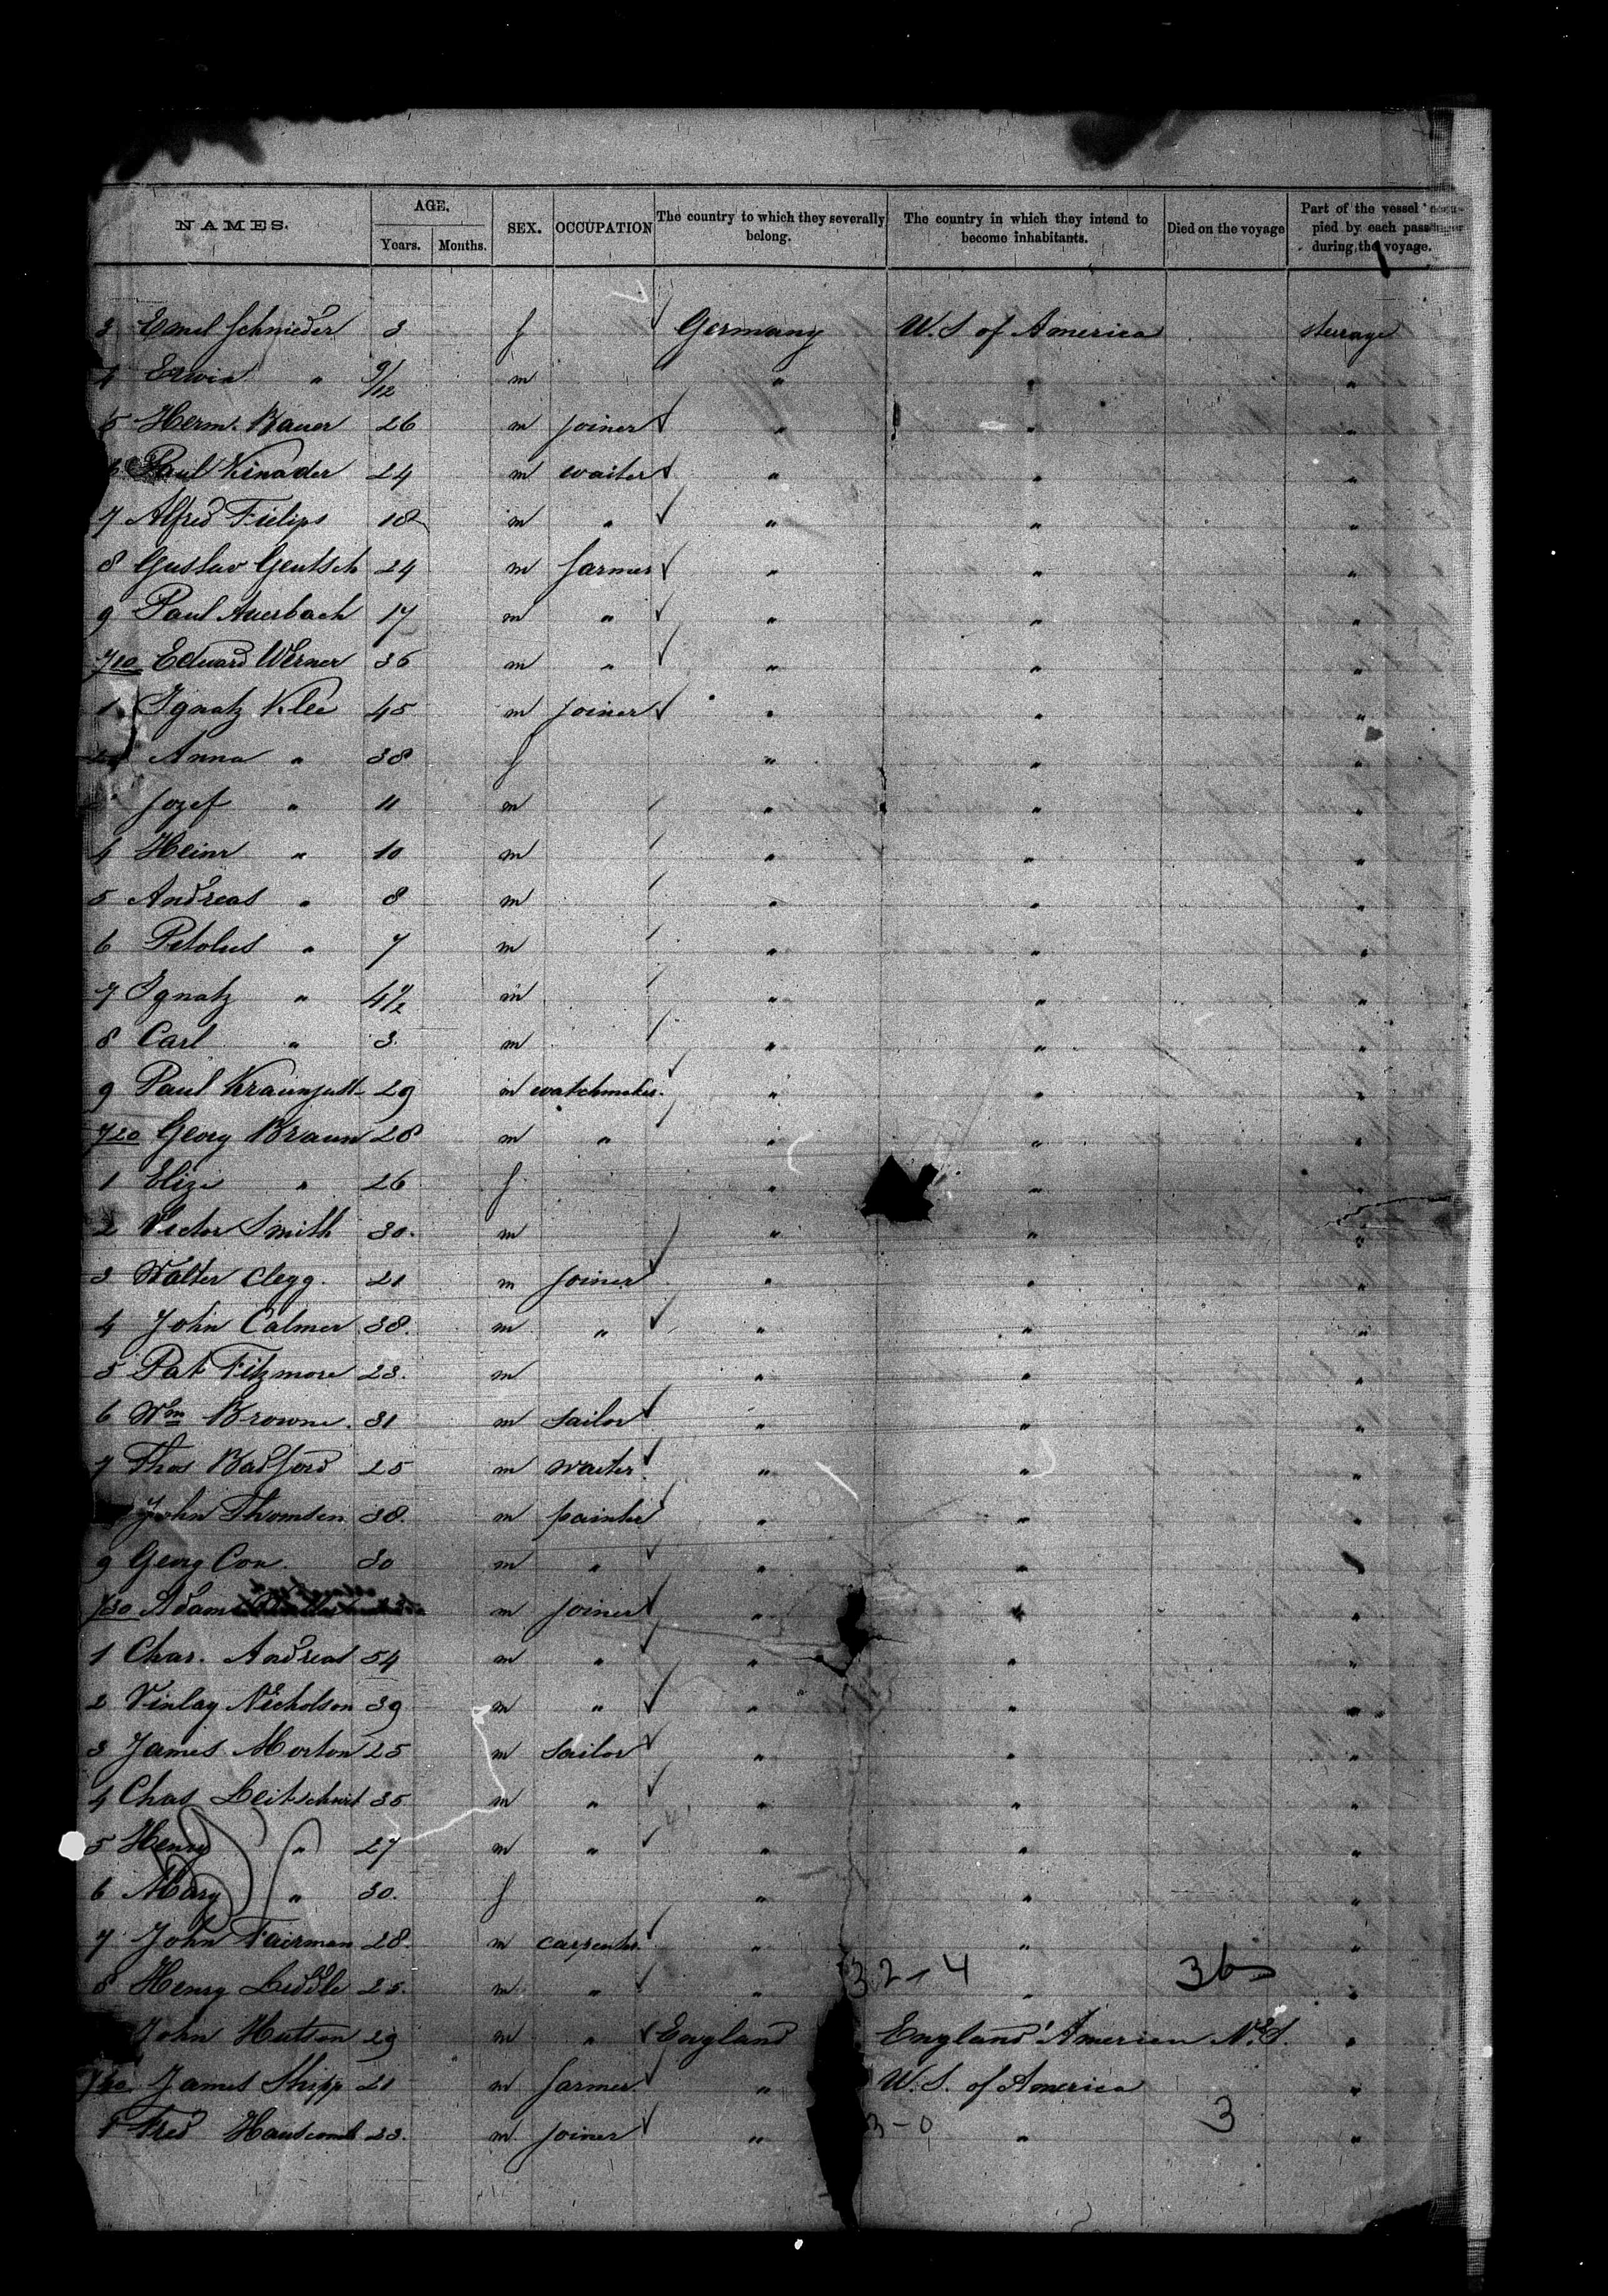 NAMES. AGE. SEX. OCCUPATION The country to which they severally belong. The country in which they intend to become inhabitants. Died on the voyage Part of the vessel occupied by each passenger during the voyage.
Years. Months.
3 Emel Schnieder 3 f Germany U.S of America steerage
4 Erwin " 9/12 m " " "
5 Herm. Bauer 26 m joiner " " "
6 Paul Kinader 24 m waiter " " "
7 Alfred Fielips 18 m " " " "
8 Gustav Gentsch 24 m farmer " " "
9 Paul Auerbach 17 m " " " "
710 Edward Werner 36 m " " " "
1 Ignatz Klee 45 m joiner " " "
Anna " 38 f " " "
Jozef " 11 m " " "
4 Heinr " 10 m " " "
5 Andreas " 8 m " " "
6 Petolus " 7 m " " "
7 Ignatz " 4 1/2 m " " "
8 Carl " 3 m " " "
9 Paul 29 m watchmaker " " "
720 Georg Braun 28 m " " " "
1 Elize " 26 f " " "
2 Victor Smith 30. m " " "
3 Walter Clegg. 21 m joiner " " "
4 John Calmer 38. m " " " "
5 Pat Fitzmore 23. m " " "
6 Wm Browne. 31 m sailor " " "
7 Thos Badford 25 m waiter " " "
John Thomsen 38. m painter " " "
9 Georg Cox 30 m " " " "
730 Adam m joiner " " "
1 Char. Andreas 54 m " " " "
2 Finlay Nicholson 39 m " " " "
3 James Morton 25 m sailor " " "
4 Chas 35 m " " " "
5 Henry " 27 m " " " "
6 Mary " 30. f " " "
7 John Fairman 28. m carpenter " " "
8 Henry Liddle 25. m " " 32-4 " 36 "
John Hutson 29 m " England England America N.S. "
740 James Shipp 21 m farmer " U.S. of America "
1 Fred Hautcomb 23. m joiner " 3-0 " 3 "